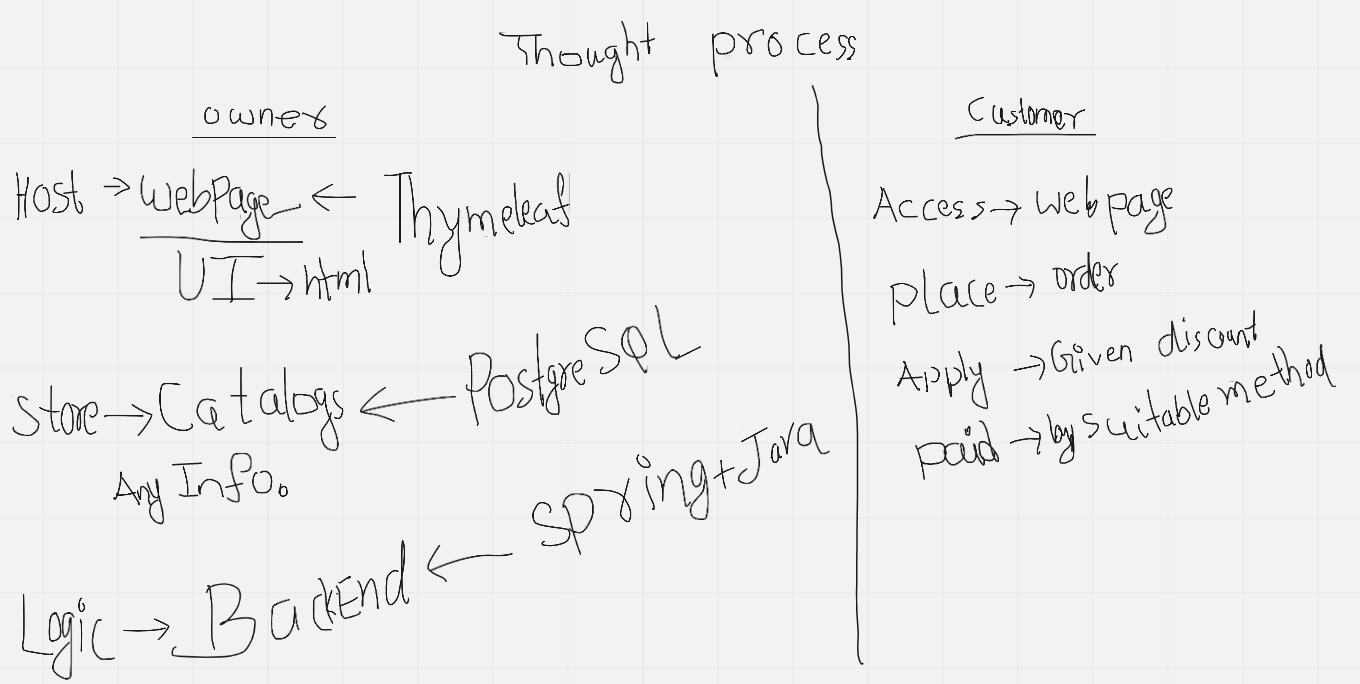 Thought process
owner
Host → WebPage ← Thymeleaf
UI → html
Store → Catalogs ← PostgreSQL
Any Info.
Logic → BackEnd ← Spring + Java
Customer
Access → webpage
place → order
Apply → Given discount
paid → by suitable method